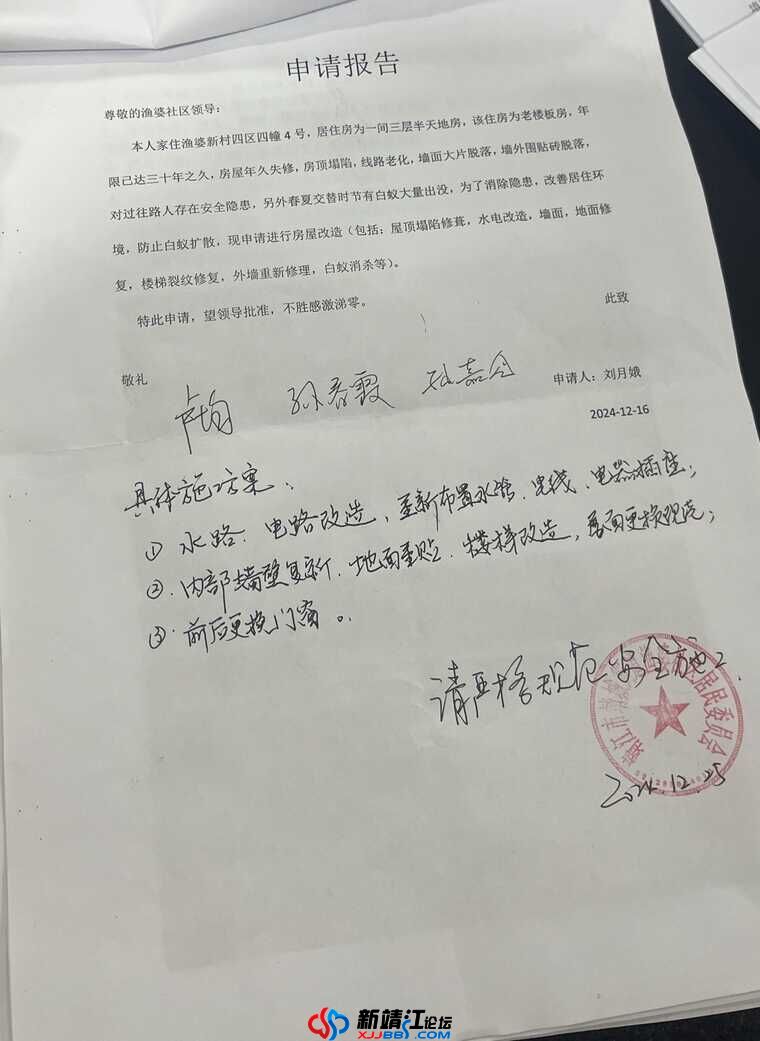 申请报告
尊敬的渔婆社区领导：
本人家住渔婆新村四区四幢4号，居住房为一间三层半天地房，该住房为老楼板房，年
限已达三十年之久，房屋年久失修，房顶塌陷，线路老化，墙面大片脱落，墙外围贴砖脱落，
对过往路人存在安全隐患，另外春夏交替时节有白蚁大量出没，为了消除隐患，改善居住环
境，防止白蚁扩散，现申请进行房屋改造（包括：屋顶塌陷修葺，水电改造，墙面，地面修
复，楼梯裂纹修复，外墙重新修理，白蚁消杀等）。
特此申请，望领导批准，不胜感激涕零。
此致
敬礼
孙春霞
申请人：刘月娥
2024-12-16
具体施工方案、
① 水路、电路改造，重新布置水管、电线、电器插座；
②、内部墙壁复新、地面重贴、楼梯改造，
③、前后更换门窗。
请严格规范安全施工
靖江市 居民委员会
2024.12.25
新靖江论坛
XJJBBS.COM